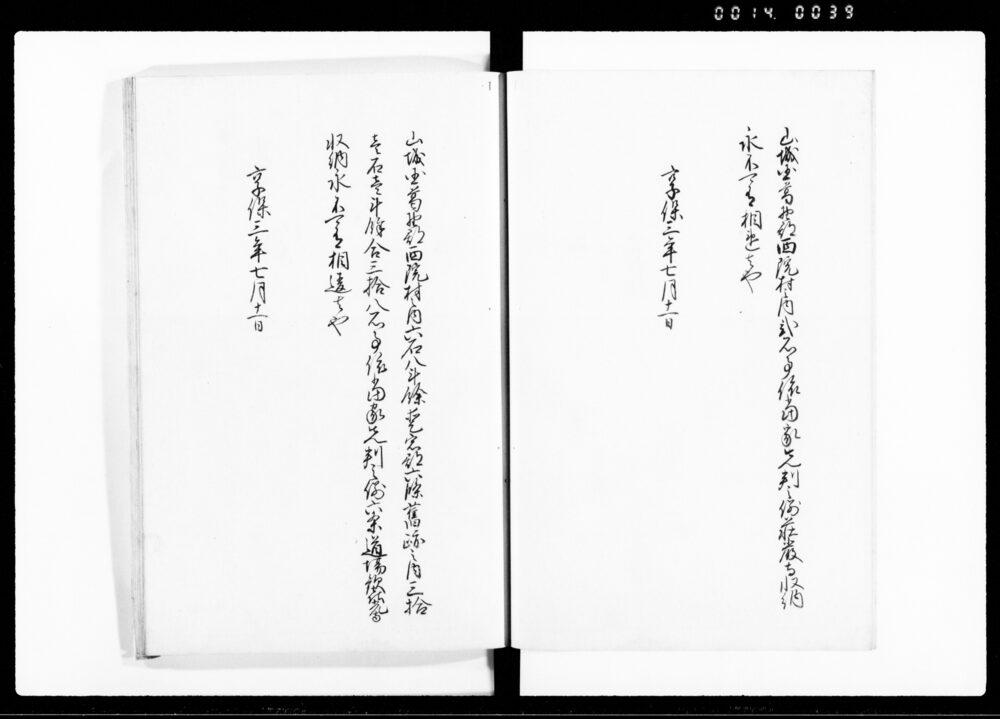 0014 0039
山城国葛野郡西院村之内弐石事依当家先判之例荘厳寺収納
永不可有相違者也
享保三年七月十一日
山城国葛野郡西院村之内六石八斗餘愛宕郡六條舊跡之内三拾
壱石壱斗餘合三拾八石事依当家先判之例六条道場歓喜光寺
収納永不可有相違者也
享保三年七月十一日